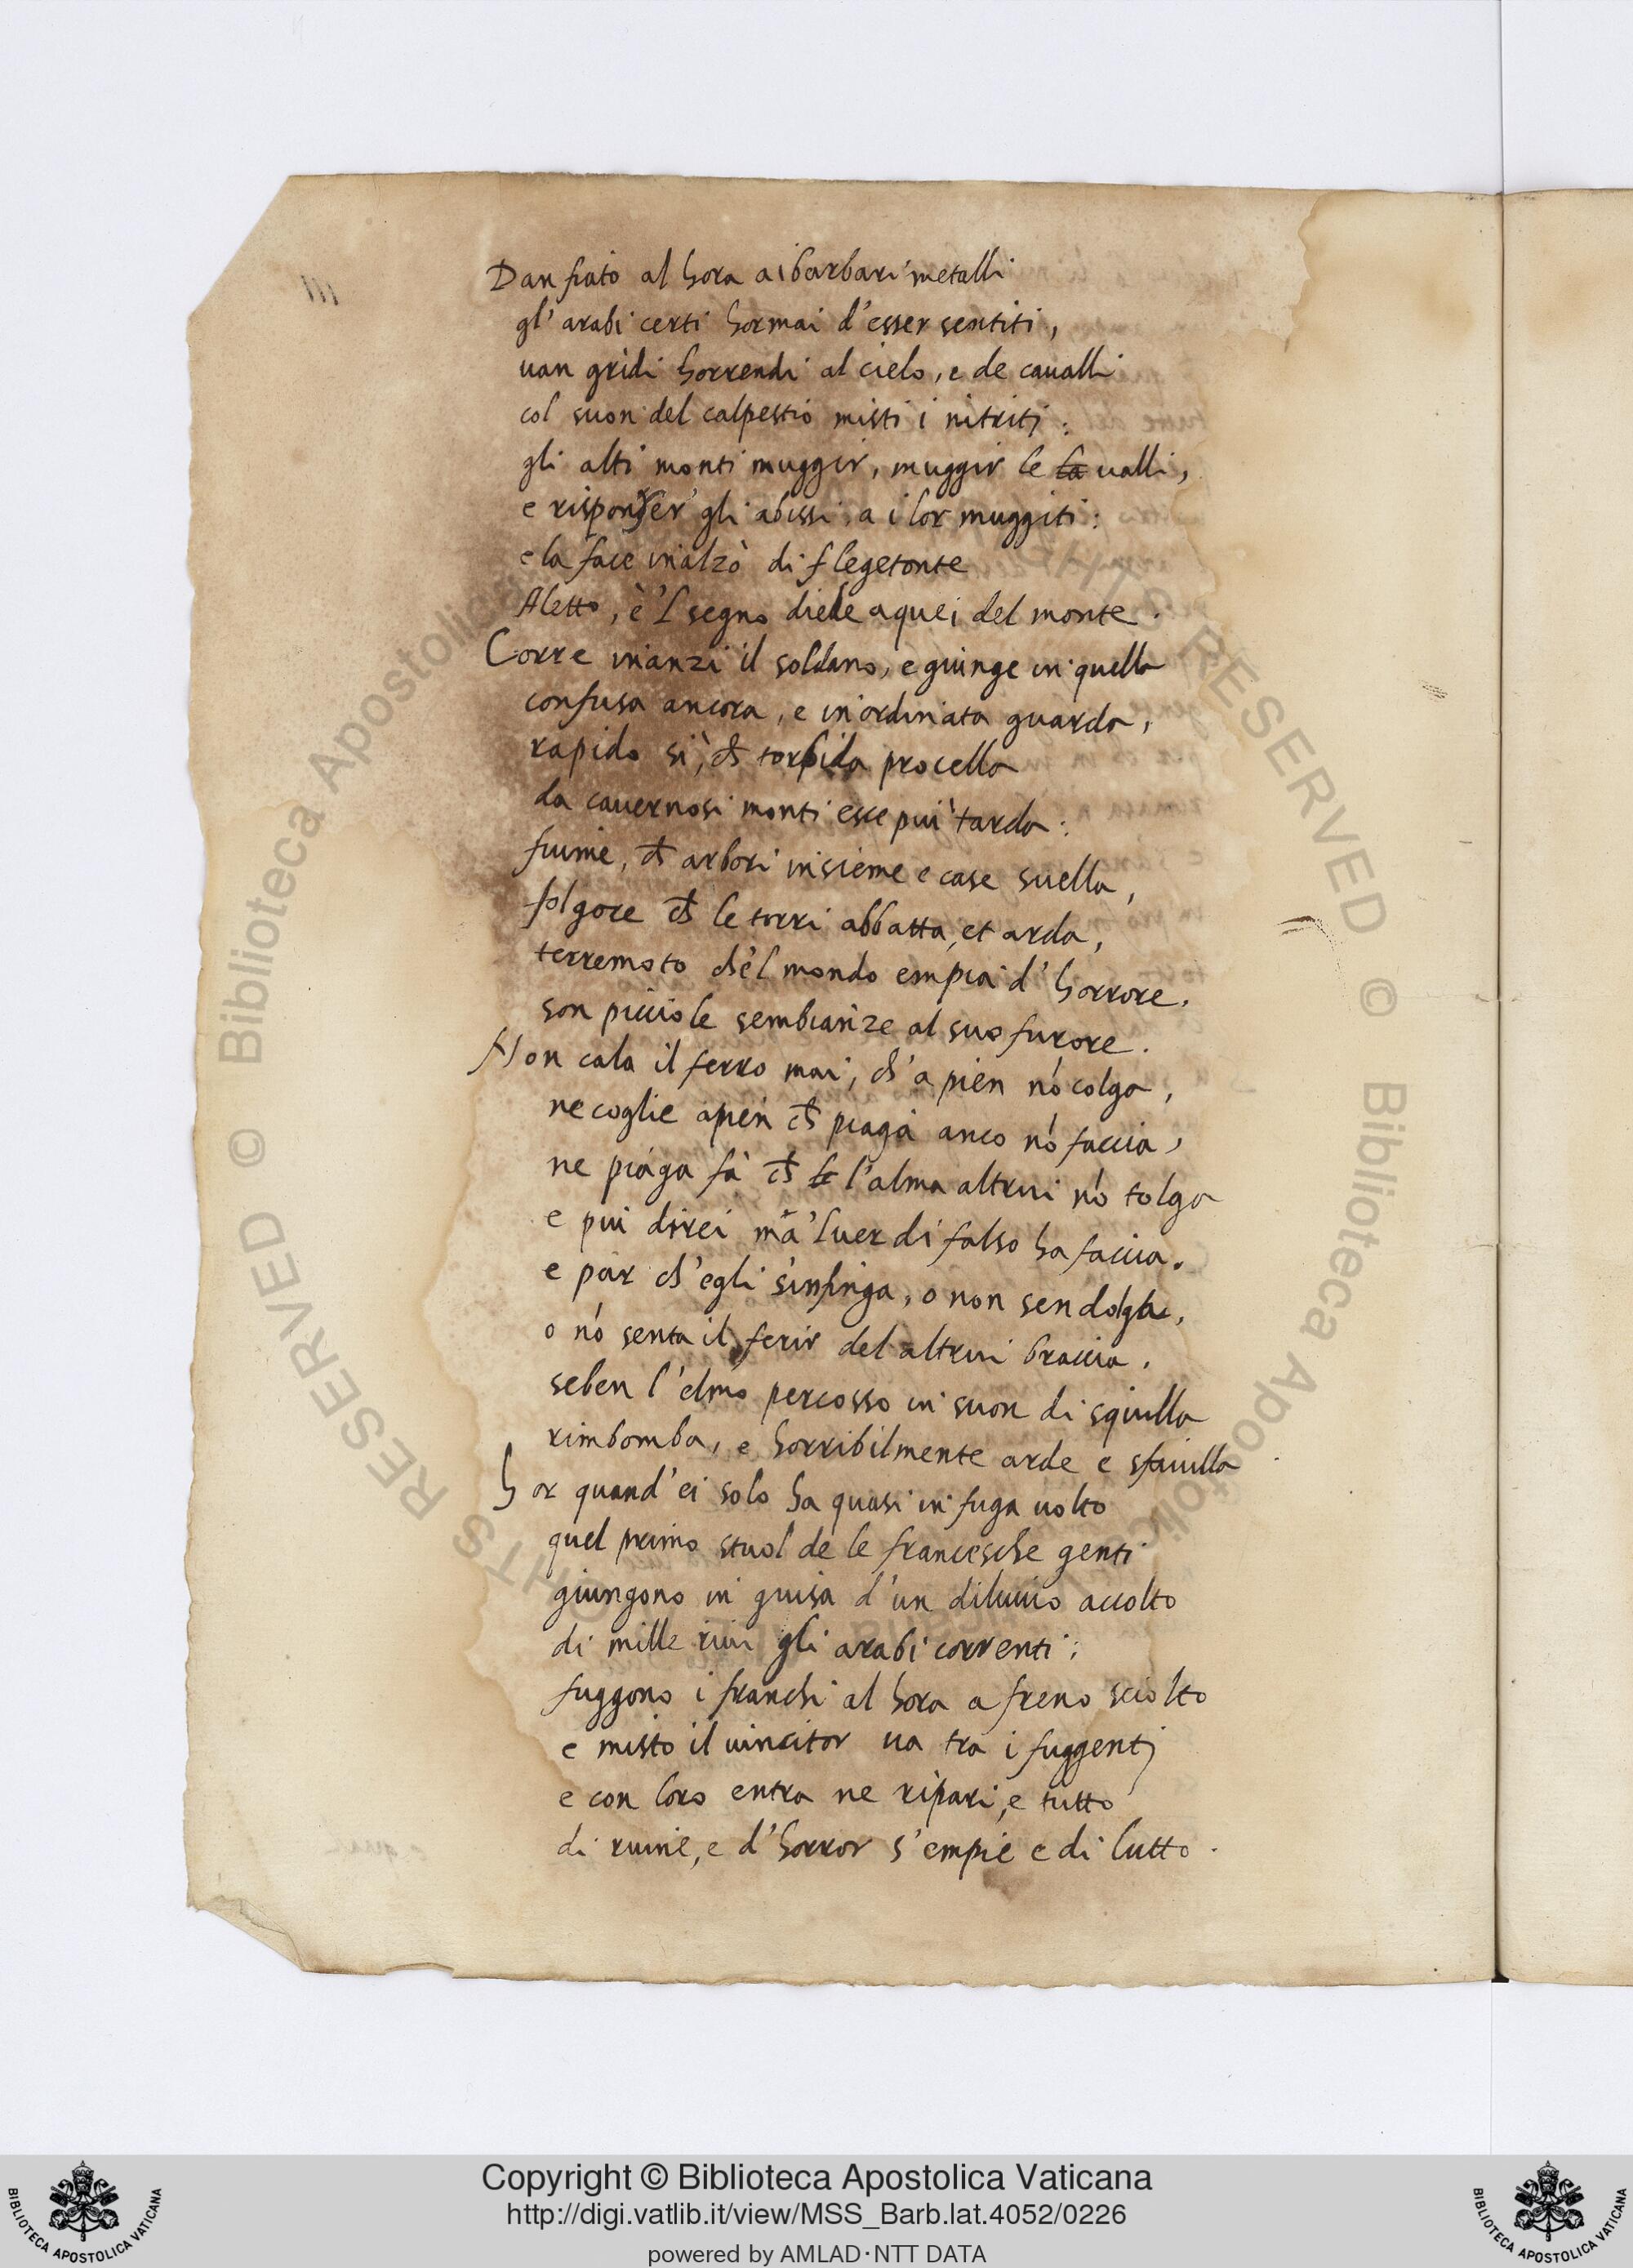 Dan fiato al hora ai barbari metalli
gl' arabi certi hormai d'esser sentiti,
uan gridi horrendi al cielo, e de caualli
col suon del calpestio misti i nitriti:
gli alti monti muggir, muggir le la ualli,
e risponder gli abissi a i lor muggiti:
e la face inalzò di flegetonte
Aletto, e 'l segno diede a quei del monte.
Corre inanzi il soldano, e giunge in quella
confusa ancora, e inordinata guarda,
rapido sì, ch̃ torbida procella
da cauernosi monti esce piu tarda:
fiume, ch̃ arbori insieme e case suella,
folgore ch̃ le torri abbatta, et arda,
terremoto ch'el mondo empia d'horrore.
son picciole sembianze al suo furore.
Non cala il ferro mai, ch'a pien nõ colga,
ne coglie apien ch̃ piaga anco nõ faccia,
ne piaga fà ch̃ l'alma altrui nõ tolga
e piu direi ma 'l uer di falso ha faccia.
e par ch'egli s'infinga, o non sen dolga,
o nõ senta il ferir del altrui braccia.
seben l'elmo percosso in suon di squilla
rimbomba, e horribilmente arde e sfauilla
hor quand'ei solo ha quasi in fuga uolto
quel primo stuol de le francesche genti
giungono in guisa d'un diluuio accolto
di mille riui gli arabi correnti:
fuggono i franchi al hora a freno sciolto
e misto il uincitor ua tra i fuggenti
e con loro entra ne ripari, e tutto
di ruine, e d'horror s'empie e di lutto.
Copyright © Biblioteca Apostolica Vaticana
http://digi.vatlib.it/view/MSS_Barb.lat.4052/0226
powered by AMLAD·NTT DATA
BIBLIOTECA APOSTOLICA VATICANA
BIBLIOTECA APOSTOLICA VATICANA